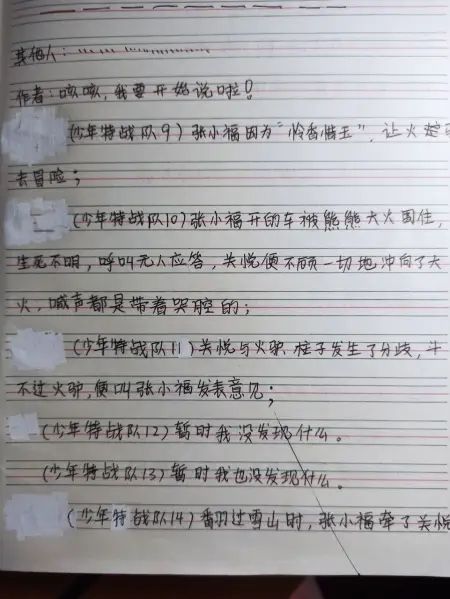 其他人：
作者：咳咳，我要开始说啦！
(少年特战队9) 张小福因为“怜香惜玉”，让火
去冒险；
(少年特战队10) 张小福开的车被熊熊大火围住，
生死不明，呼叫无人应答，关悦便不顾一切地冲向了大
火，喊声都是带着哭腔的；
(少年特战队11) 关悦与火驴、柱子发生了分歧，斗
不过火驴，便叫张小福发表意见；
(少年特战队12) 暂时我没发现什么。
(少年特战队13) 暂时我也没发现什么。
(少年特战队14) 翻过雪山时，张小福牵了关悦